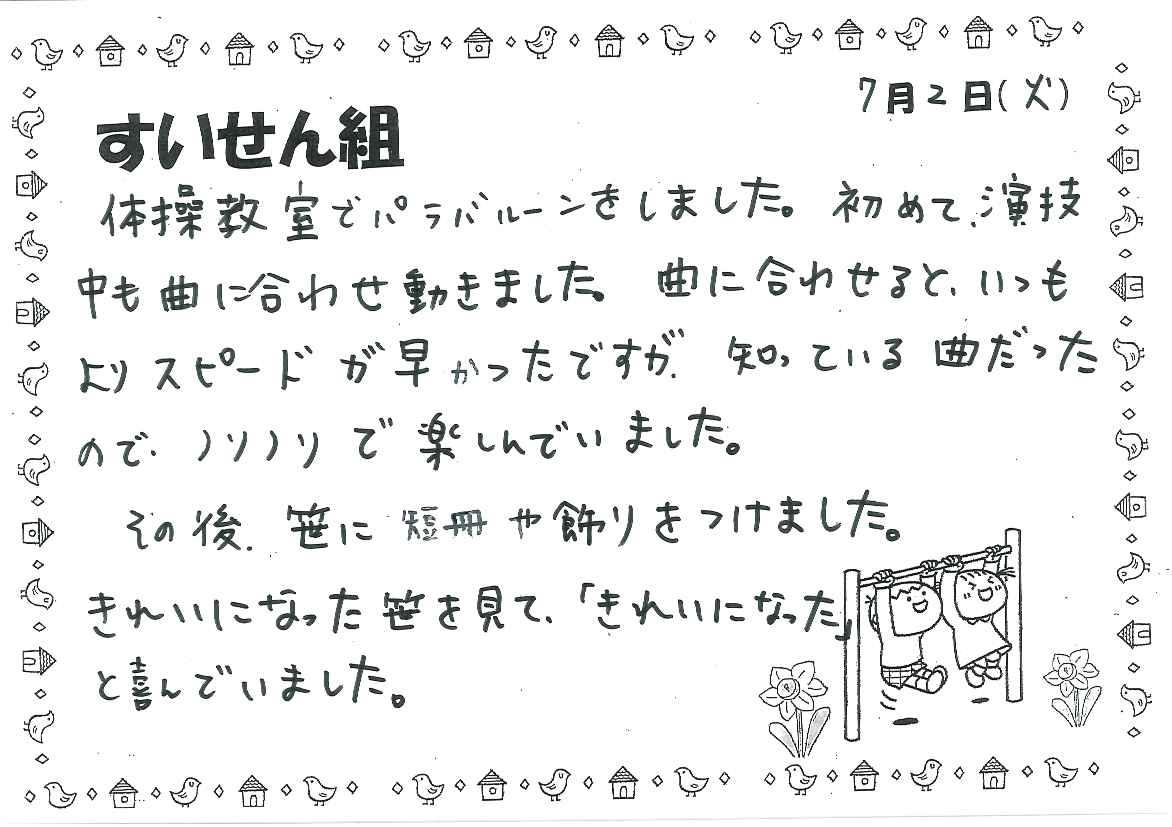 7月2日(火)
すいせん組
体操教室でパラバルーンをしました。初めて、演技
中も曲に合わせ動きました。曲に合わせると、いつも
よりスピードが早かったですが、知っている曲だった
ので、ノリノリで楽しんでいました。
その後、笹に短冊や飾りをつけました。
きれいになった笹を見て、「きれいになった」
と喜んでいました。